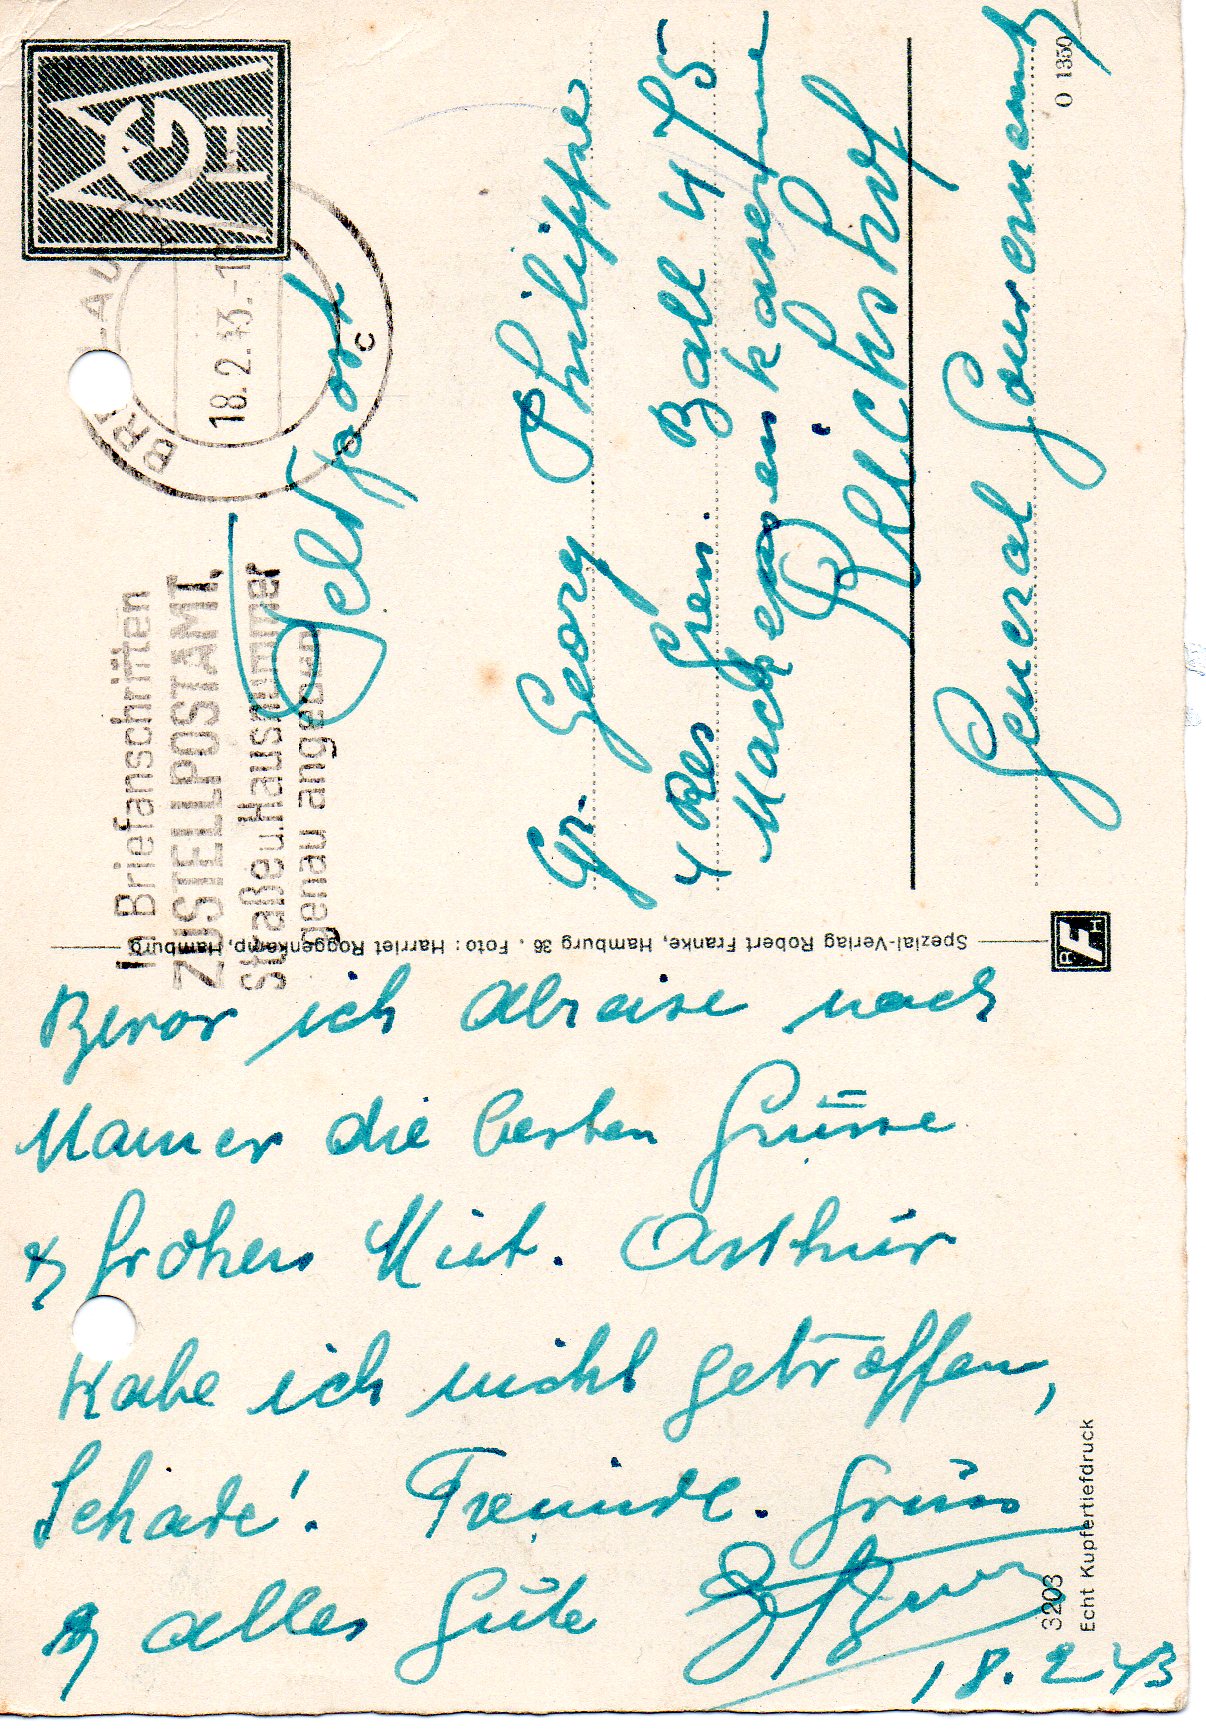 BRESLAU
18.2.43.-1
c
In Briefanschriften
ZUSTELLPOSTAMT,
Straße u. Hausnummer
genau angeben
Feldpost
Gr. Georg Philippe
4 Res Gren. Batl 4/75
Mackensenkaserne
Reichshof
General Gouvernement
O 1350
Spezial-Verlag Robert Franke, Hamburg 36 . Foto: Harriet Roggenkamp, Hamburg
RFH
Bevor ich abreise nach
Mamer die besten Grüsse
& frohen Mut. Arthur
habe ich nicht getroffen,
Schade! Freundl. Gruss
& alles Gute
18.2.43
3203
Echt Kupfertiefdruck